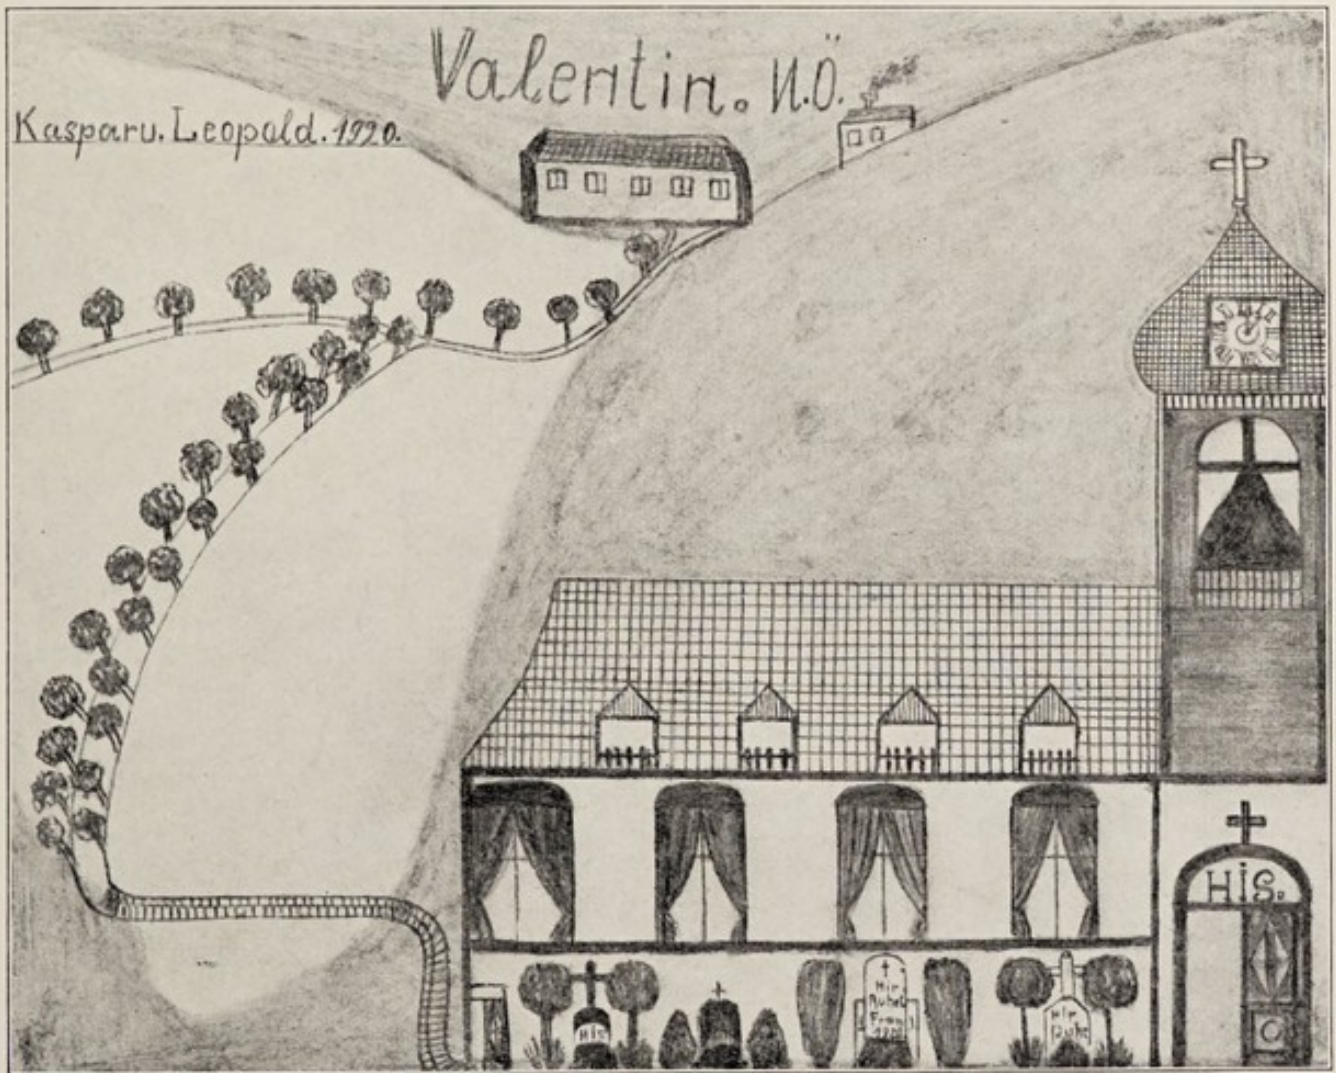 Valentin. N.Ö.
Kasparu. Leopold. 1920.
HiS.
His
Hir
Ruhet
Franz
Hir
Ruht